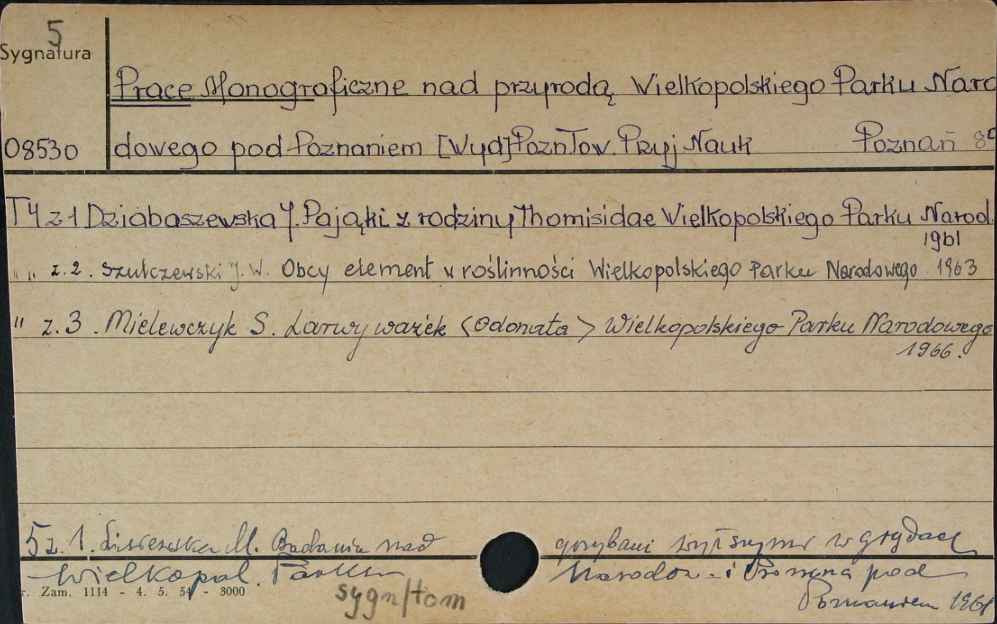 5
Sygnatura
Prace Monograficzne nad przyrodą Wielkopolskiego Parku Naro
08530 dowego pod Poznaniem [Wyd] Pozn Tow. Przyj Nauk Poznań
T 4 z 1 Dziabaszewska J. Pająki z rodziny Thomisidae Wielkopolskiego Parku Narod.
1961
" " z. 2. Szulczewski J. W. Obcy element w roślinności Wielkopolskiego Parku Narodowego 1963
" z. 3. Mielewczyk S. Larwy ważek <Odonata> Wielkopolskiego Parku Narodowego
1966.
5 z. 1. Lisiewska M. Badania nad grzybami wyższymi w grądach
Wielkopol. Parku Narodow. i pod
r. Zam. 1114 - 4. 5. 54 - 3000
sygn/tom
Poznaniem